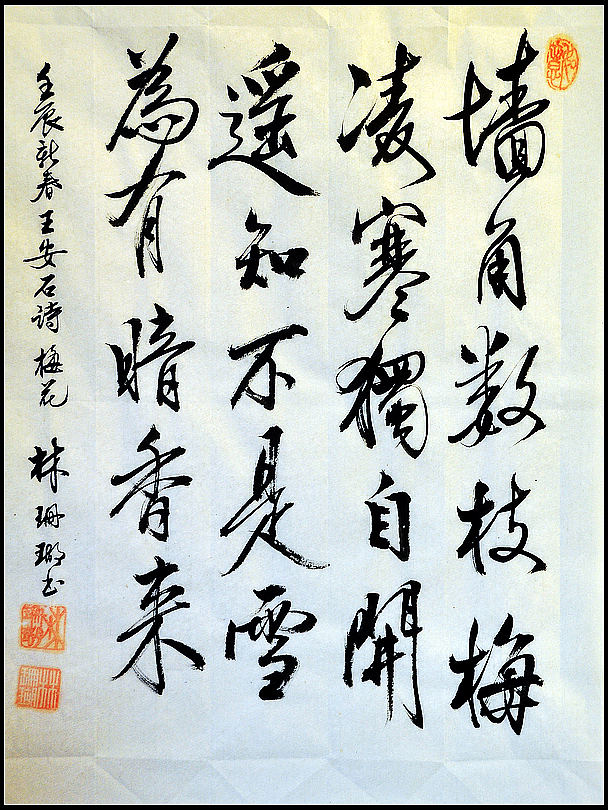 墻角数枝梅
凌寒獨自開
遥知不是雪
為有暗香来
壬辰新春王安石詩梅花 林珊瑚书